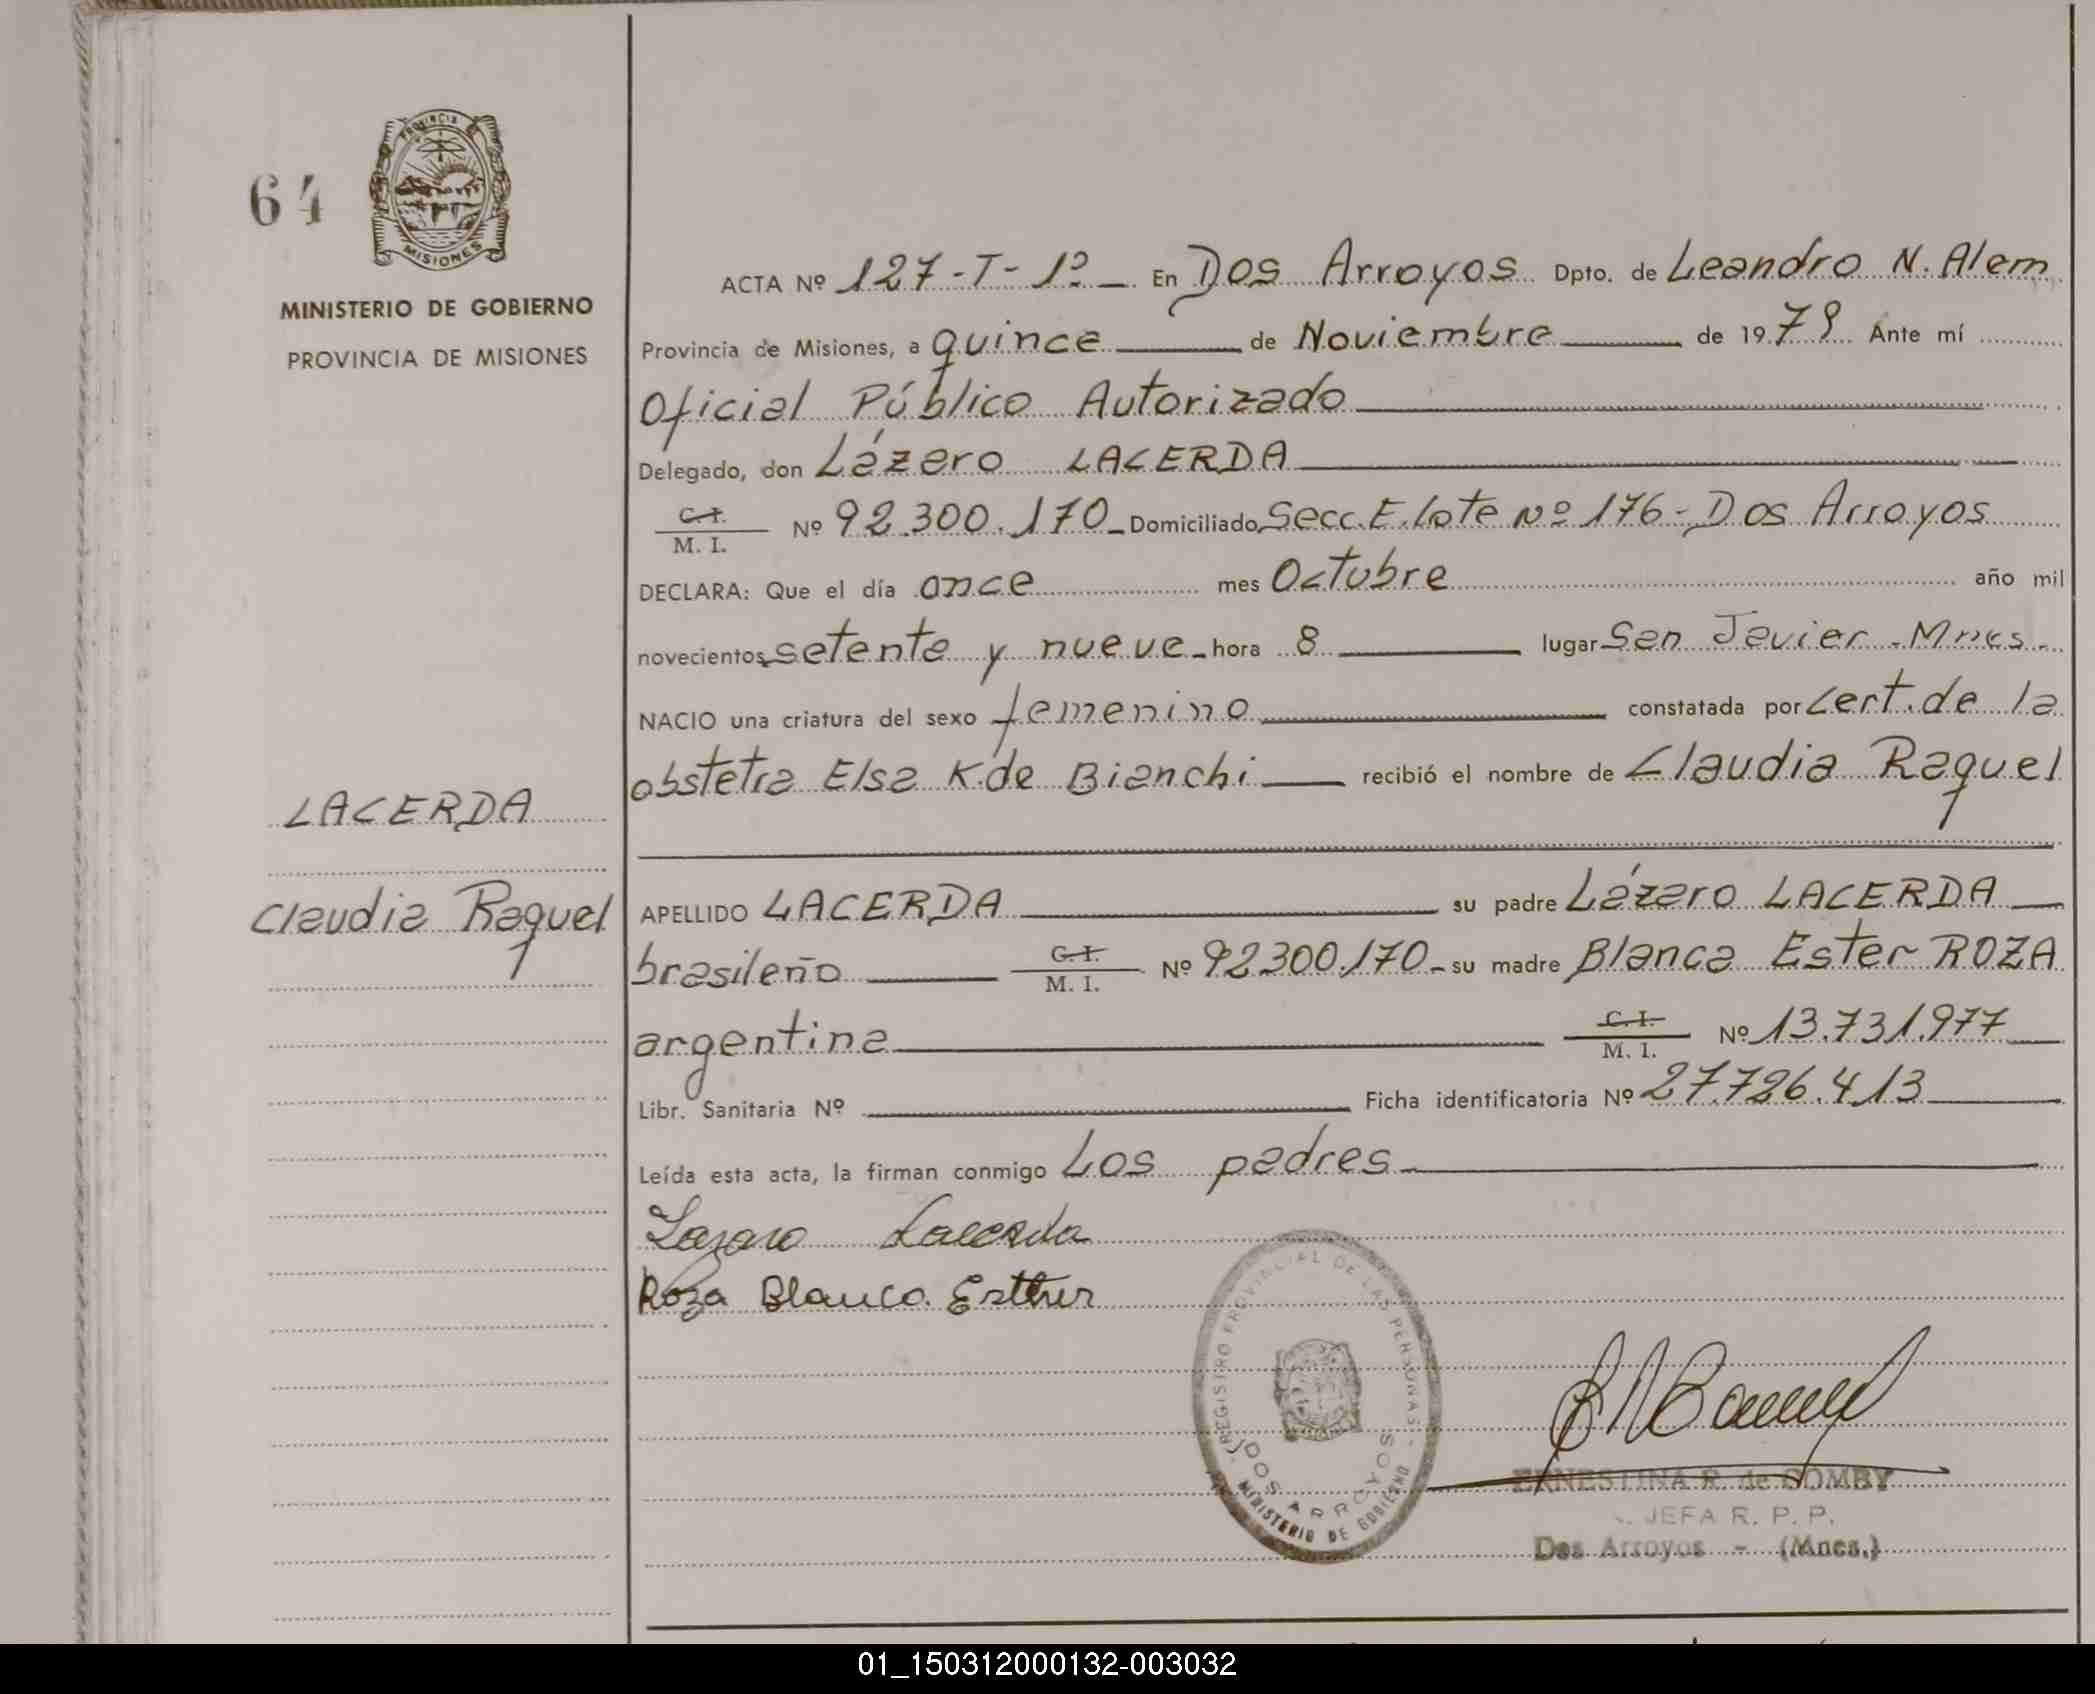 64
PROVINCIA
MISIONES
MINISTERIO DE GOBIERNO
PROVINCIA DE MISIONES
LACERDA
Claudia Raquel
ACTA Nº 127-T-1º En Dos Arroyos Dpto. de Leandro N. Alem
Provincia de Misiones, a quince de Noviembre de 1979 Ante mí
Oficial Público Autorizado
Delegado, don Lázaro LACERDA
C. I.
M. I. Nº 92.300.170 Domiciliado Secc. E. lote Nº 176 - Dos Arroyos
DECLARA: Que el día once mes Octubre año mil
novecientos setenta y nueve hora 8 lugar San Javier - Mnes -
NACIO una criatura del sexo femenino constatada por Cert. de la
obstetra Elsa K. de Bianchi recibió el nombre de Claudia Raquel
APELLIDO LACERDA su padre Lázaro LACERDA
brasileño C. I. M. I. Nº 92300.170 su madre Blanca Ester ROZA
argentina C. I. M. I. Nº 13.731.977
Libr. Sanitaria Nº Ficha identificatoria Nº 27.726.413
Leída esta acta, la firman conmigo Los padres
Lazaro Lacerda
Roza Blanca Esther
REGISTRO PROVINCIAL DE LAS PERSONAS
DOS ARROYOS
MINISTERIO DE GOBIERNO
ERNESTINA R. de GOMBY
JEFA R. P. P.
Dos Arroyos - (Mnes.)
01_150312000132-003032